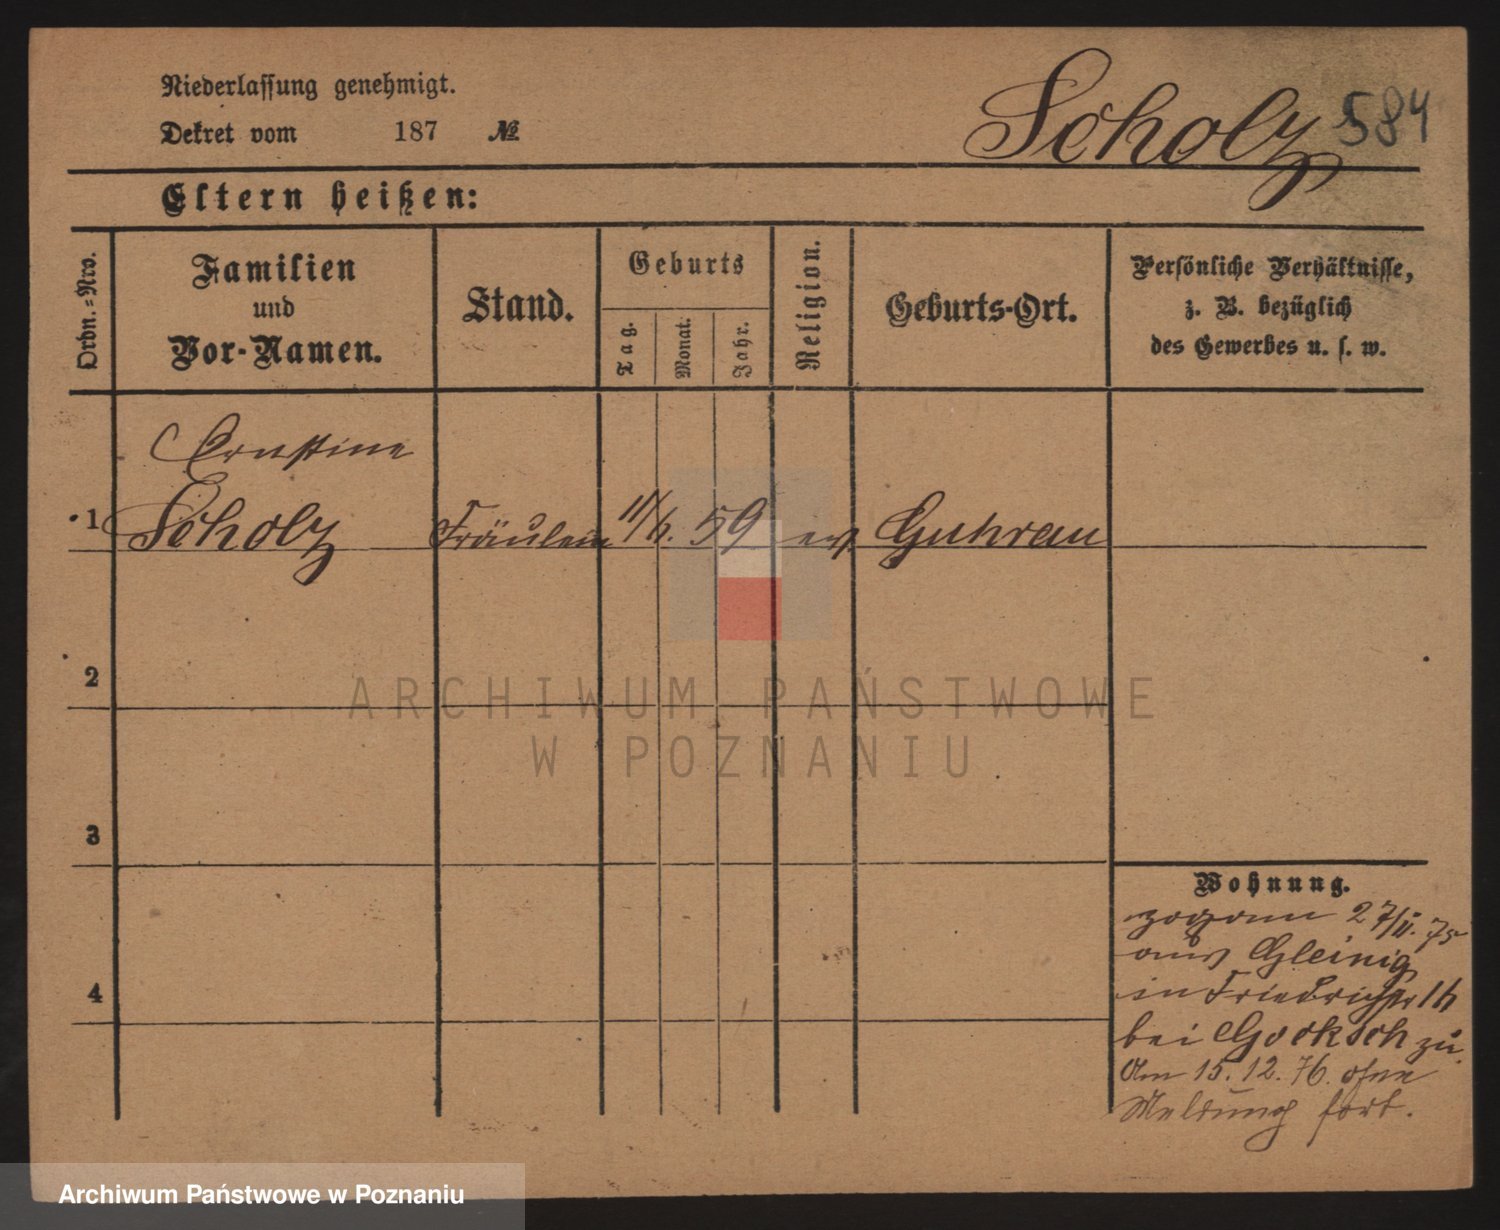 Niederlassung genehmigt.
Dekret vom 187 №
Scholz 584
Eltern heißen:
Ordn.-Nro.
Familien
und
Vor-Namen.
Stand.
Geburts
Tag.
Monat.
Jahr.
Religion.
Geburts-Ort.
Persönliche Verhältnisse,
z. B. bezüglich
des Gewerbes u. s. w.
Ernstine
1 Scholz Fräulein 11/6. 59 ev Guhrau
2
3
4
Wohnung.
zog am 27/11. 75
aus Gleinig
in Friedrichstr 16
bei Gocksch zu.
Am 15. 12. 76. ohne
Meldung fort.
ARCHIWUM PAŃSTWOWE
W POZNANIU
Archiwum Państwowe w Poznaniu